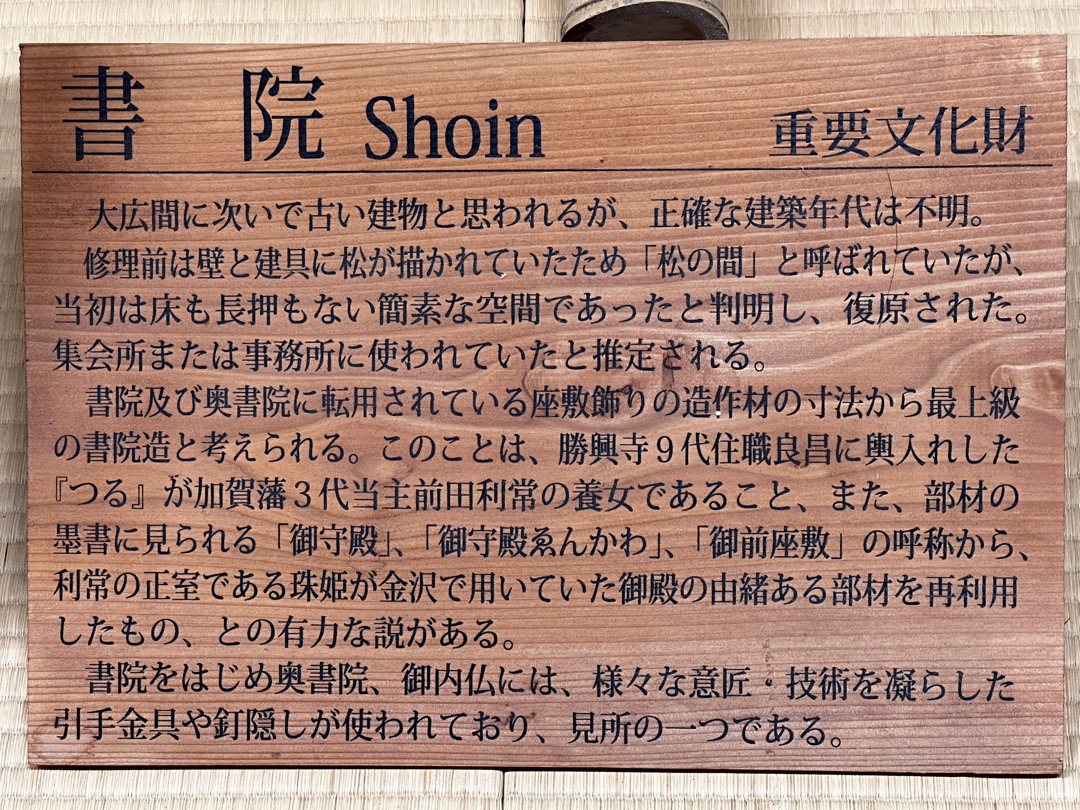 書院 Shoin 重要文化財
大広間に次いで古い建物と思われるが、正確な建築年代は不明。
修理前は壁と建具に松が描かれていたため「松の間」と呼ばれていたが、
当初は床も長押もない簡素な空間であったと判明し、復原された。
集会所または事務所に使われていたと推定される。
書院及び奥書院に転用されている座敷飾りの造作材の寸法から最上級
の書院造と考えられる。このことは、勝興寺９代住職良昌に輿入れした
『つる』が加賀藩３代当主前田利常の養女であること、また、部材の
墨書に見られる「御守殿」、「御守殿ゑんかわ」、「御前座敷」の呼称から、
利常の正室である珠姫が金沢で用いていた御殿の由緒ある部材を再利用
したもの、との有力な説がある。
書院をはじめ奥書院、御内仏には、様々な意匠・技術を凝らした
引手金具や釘隠しが使われており、見所の一つである。